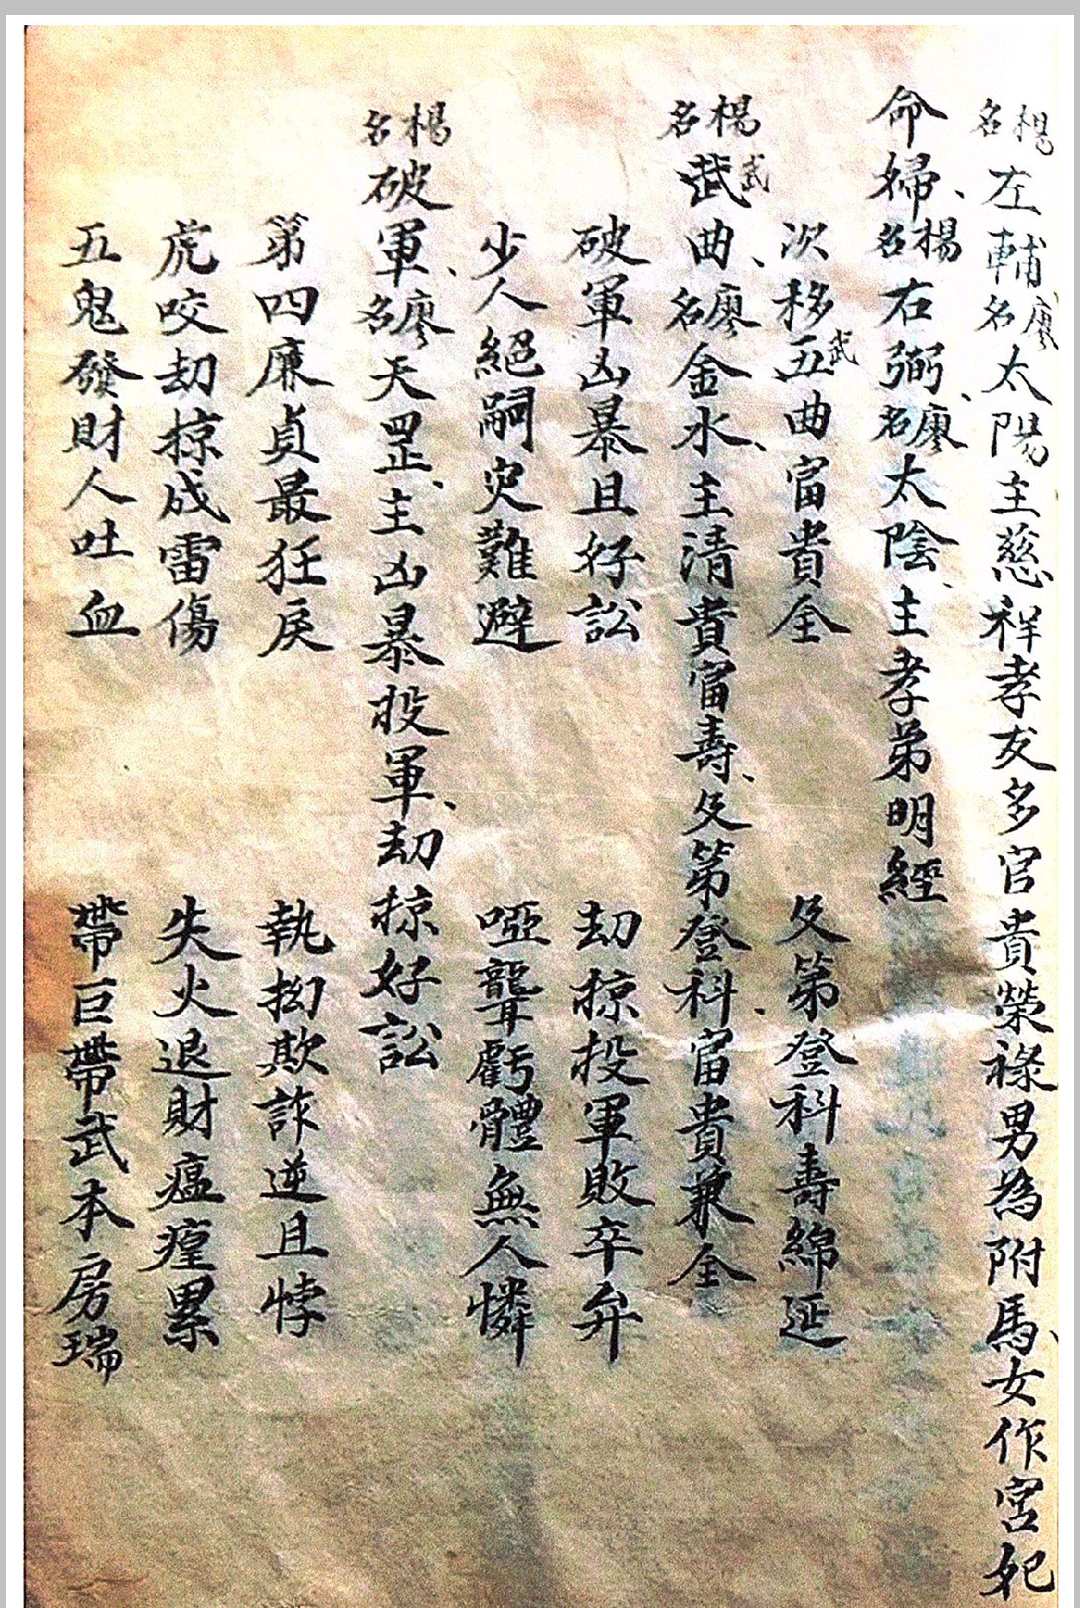 楊名左輔廖名太陽主慈祥孝友多官貴榮祿男為附馬、女作宮妃
命婦、楊名右弼、廖名太陰、主孝弟明經
次移五武曲富貴全 及第登科壽綿延
楊名武武曲、廖名金水、主清貴富壽、及第登科、富貴兼全
破軍凶暴且好訟 劫掠投軍敗卒弁
少人絕嗣灾難避 啞聾虧體無人憐
楊名破軍、廖名天罡、主凶暴投軍、劫掠好訟
第四廉貞最狂戾 執拗欺詐逆且悖
虎咬劫掠成雷傷 失火退財瘟瘟累
五鬼發財人吐血 帶巨帶武本房瑞